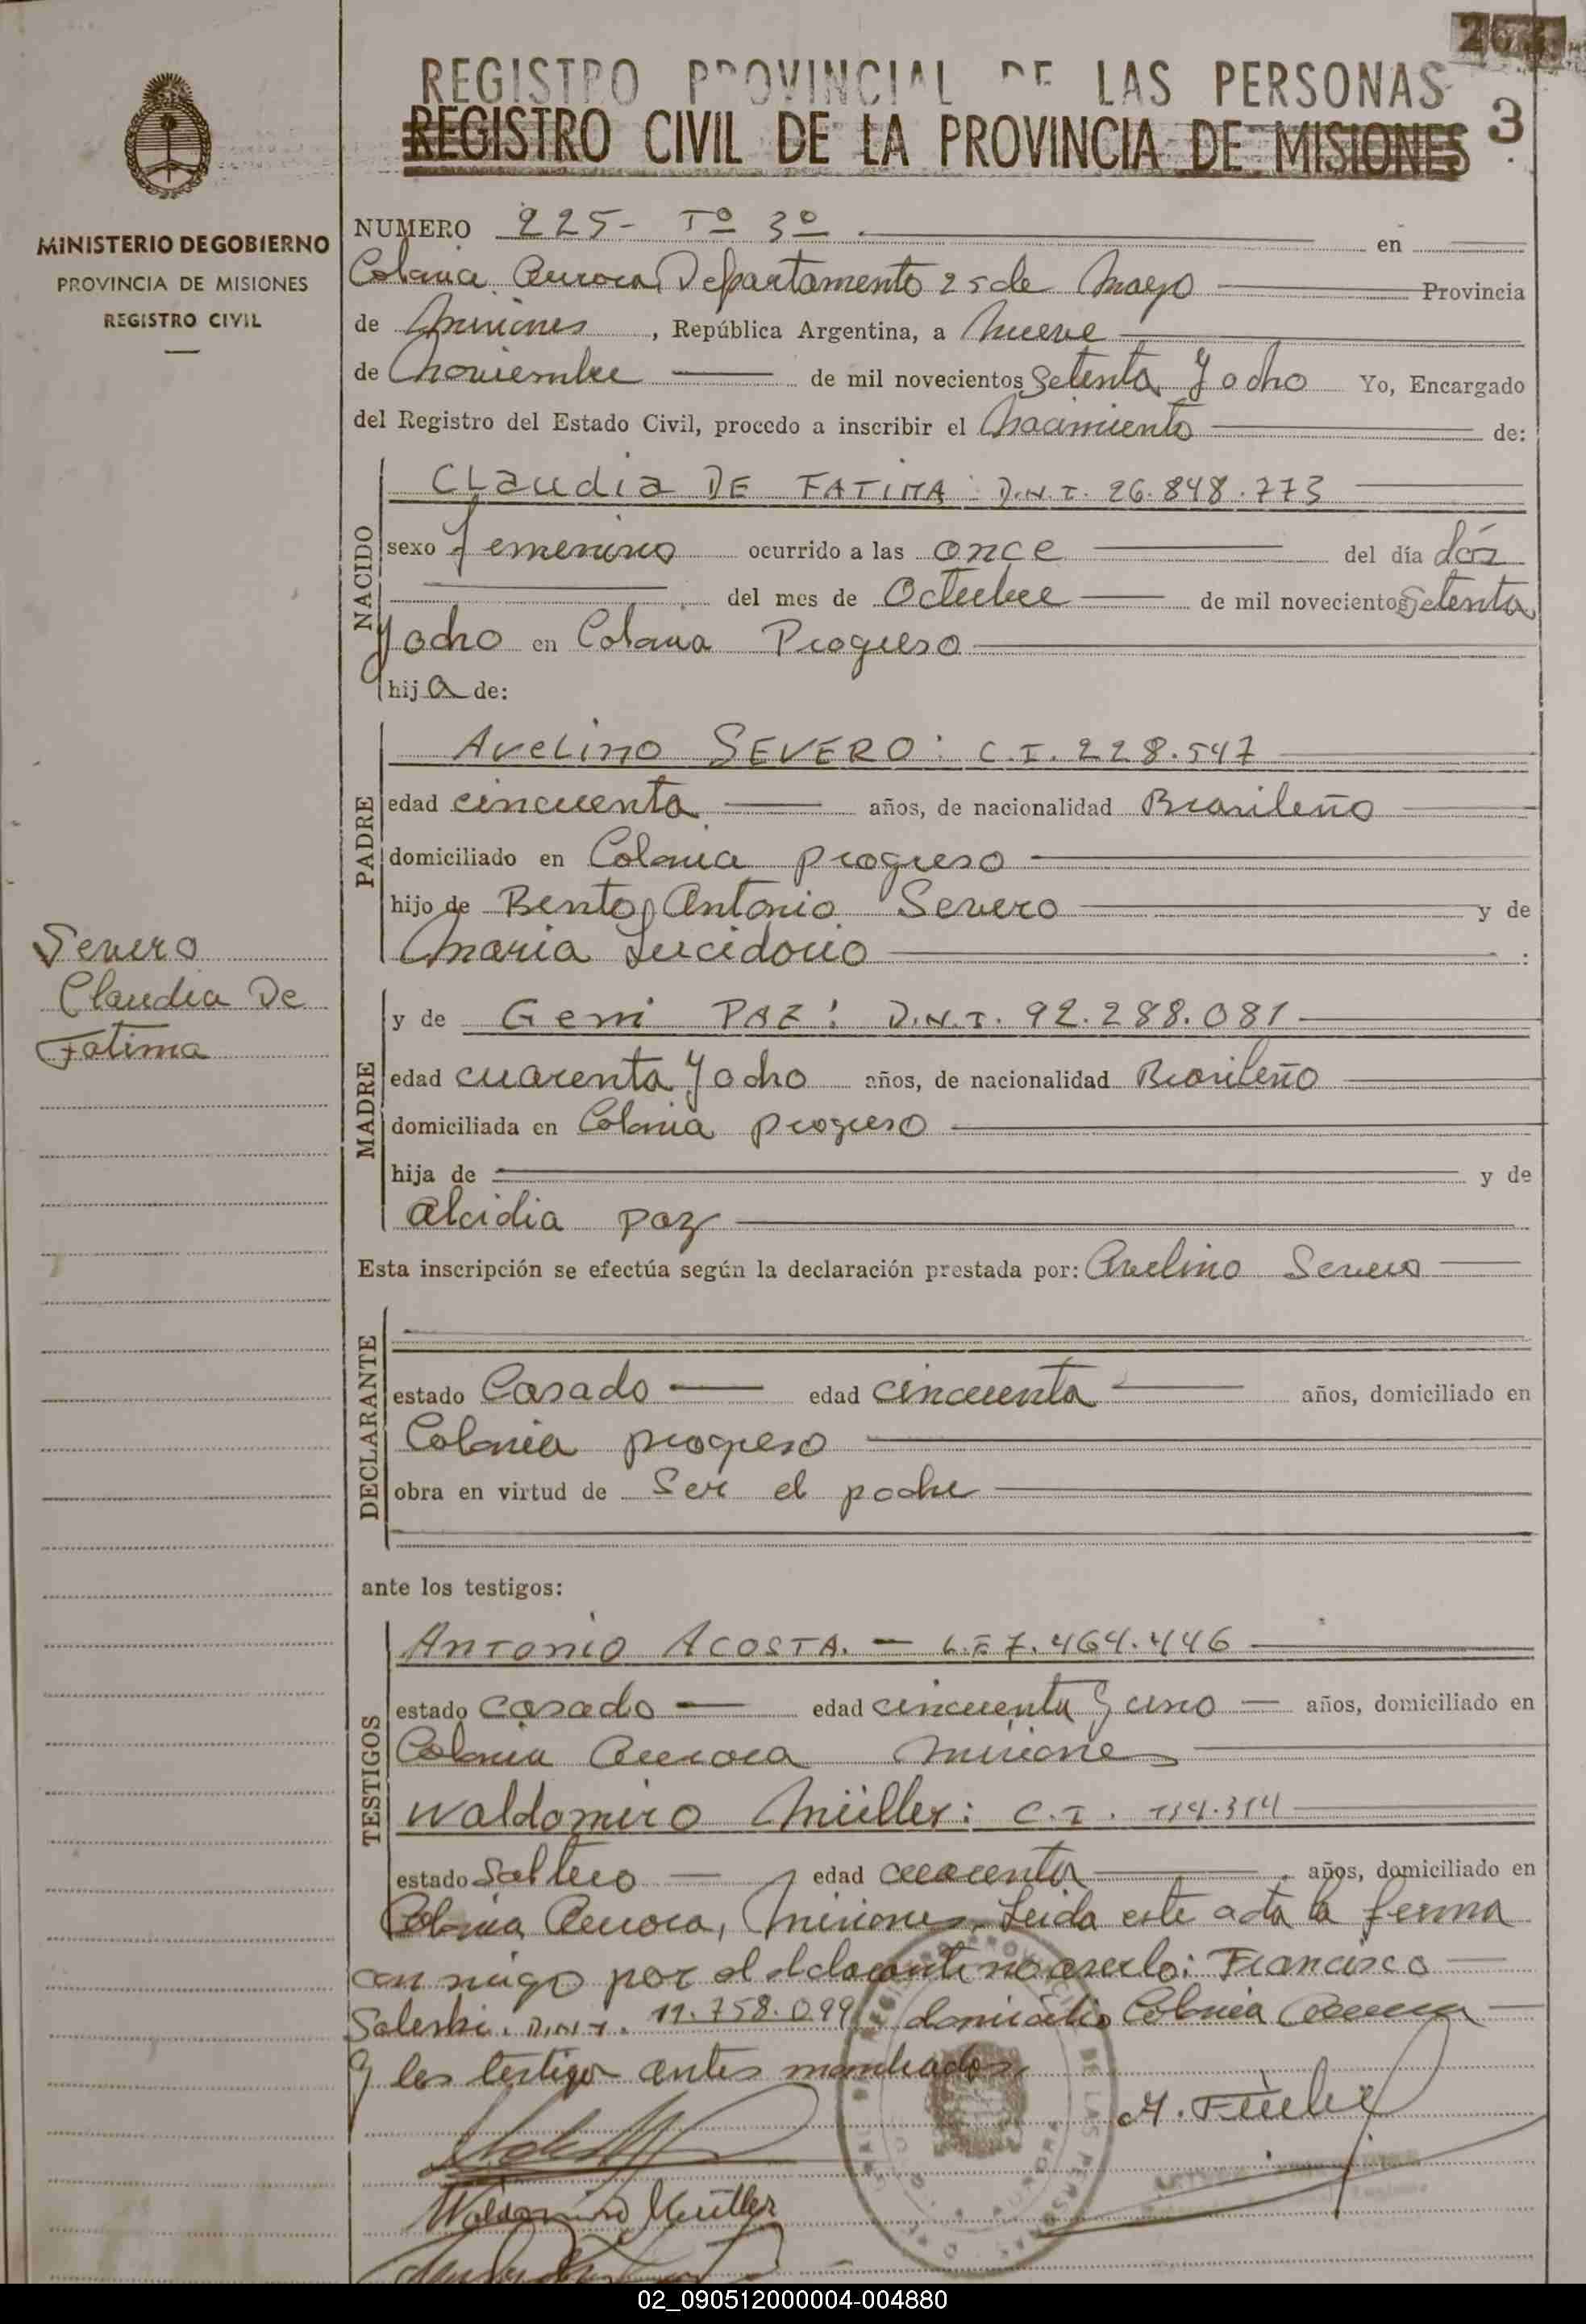 263
REGISTRO PROVINCIAL DE LAS PERSONAS
REGISTRO CIVIL DE LA PROVINCIA DE MISIONES 3
MINISTERIO DE GOBIERNO
PROVINCIA DE MISIONES
REGISTRO CIVIL
NUMERO 225- Tº 3º en
Colonia Aurora, Departamento 25 de Mayo Provincia
de Misiones, República Argentina, a Nueve
de Noviembre de mil novecientos Setenta y ocho Yo, Encargado
del Registro del Estado Civil, procedo a inscribir el Nacimiento de:
NACIDO
Claudia DE FATIMA: D.N.I. 26.848.773
sexo femenino ocurrido a las once del día dós
del mes de Octubre de mil novecientos Setenta
y ocho en Colonia Progreso
hija de:
PADRE
Avelino SEVERO: C.I. 228.547
edad cincuenta años, de nacionalidad Brasileño
domiciliado en Colonia progreso
hijo de Bento Antonio Severo y de
Maria Lucidorio
Severo
Claudia De
Fatima
MADRE
y de Geni PAZ: D.N.I. 92.288.081
edad cuarenta y ocho años, de nacionalidad Brasileño
domiciliada en Colonia progreso
hija de y de
Alcidia paz
Esta inscripción se efectúa según la declaración prestada por: Avelino Severo
DECLARANTE
estado Casado edad cincuenta años, domiciliado en
Colonia progreso
obra en virtud de Ser el padre
ante los testigos:
TESTIGOS
Antonio ACOSTA. - L.E 7.464.446
estado casado edad cincuenta y uno años, domiciliado en
Colonia Aurora Misiones
Waldomiro Müller: C.I. 114.314
estado Soltero edad cuarenta años, domiciliado en
Colonia Aurora, Misiones. Leida este acta la firma
con migo por el declarante no : Francisco
Saleski. D.N.I. 11.758.099 domicilio Colonia Aurora
y los testigos antes
Waldomiro Müller
02_090512000004-004880